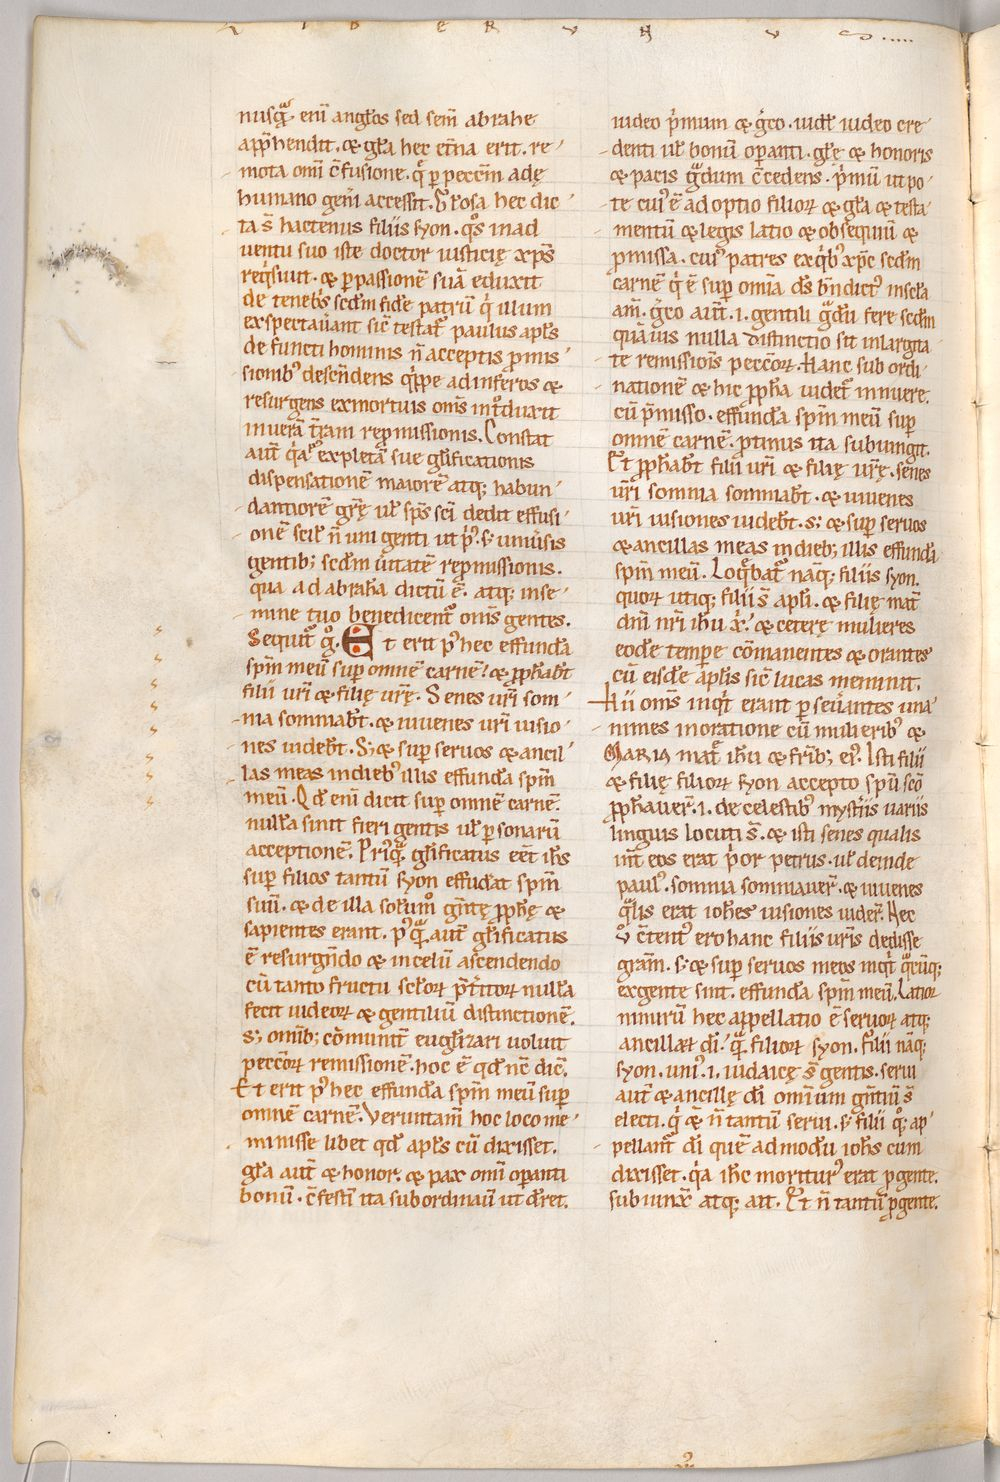 L I B E R V N V S .....
nusqᷓ enī angl̄os sed sem̄ abrahe
app̄hendit. & gl̄a hec et̄na erit. re
mota omī c̄fusione. q̄ ꝑ pecc̄m adę
humano gen̄i accessit. Gl̄osa hec dic
ta s̄ hactenus filiis syon. qͦs in ad
uentu suo iste doctor iusticię xp̄s
reqͥsiuit. & ꝑ passionē suā eduxit
de tenebͥs scd̄m fidē patrū qͥ illum
exspectauant sic̄ testat᷑ paulus apl̄s
de functi hominis n̄ acceptis ꝓmis
sionibꝰ descn̄dens qͥppe ad inferos &
resurgens ex mortuis om̄s int̊duxit
in uerā t̄ram repmissionis. Constat
aut̄ qͥa pꝰ expletā sue gl̄ificationis
dispensationē maiorē atq; habun
dantiorē gr̄ę ul̄ sp̄s sc̄i dedit effusi
onē scil̄ n̄ uni genti ut pͥꝰ. s; uniūsis
gentib; scd̄m ūitatē repmissionis.
qua ad abrah̄a dictū ē. atq; in se
mine tuo benedicent᷑ om̄s gentes.
Sequit᷑ gͦ. Et erit pꝰ hec effundā
sp̄m meū suꝑ omnē carnē! & ꝓph̄ab̄t
filii ur̄i & filię ur̄ę. Senes ur̄i som
nia somniab̄t. & iuuenes ur̄i uisio
nes uideb̄t. S; & suꝑ seruos & ancil
las meas in diebꝰ illis effundā sp̄m
meū. Qd̄ enī dicit suꝑ omnē carnē.
null̄a sinit fieri gentis ul̄ ꝑsonarū
acceptionē. Priꝰqᷓ gl̄ificatus eēt ih̄s
suꝑ filios tantū syon effud̄at sp̄m
suū. & de illa sol̄ummͦ gn̄tę ꝓph̄ę &
sapientes erant. pꝰqᷓ aut̄ gl̄ificatus
ē resurgn̄do & in celū ascendendo
cū tanto fructu scl̄oꝝ p̄t̄itoꝝ null̄a
fecit iudeoꝝ & gentiliū distinctionē.
s; omib; cōmunit̄ eugl̄izari uoluit
pecc̄oꝝ remissionē. hoc ē qd̄ nc̄ dic̄.
Et erit pꝰ hec effundā sp̄m meū suꝑ
omnē carnē. Veruntam̄ hoc loco me
minisse libet qd̄ apl̄s cū dixisset.
gl̄a aut̄ & honor. & pax omī oꝑanti
bonū. c̄festī ita subordinauit ut dr̄et.
iudeo pͥmum & gͥco. uidel̄ iudeo cre
denti ul̄ bonū oꝑanti. gl̄ę & honoris
& pacis gᷓdum c̄cedens. pͥmū ut po
te cuiꝰ ē adoptio filioꝝ & gl̄a & testa
mentū & legis latio & obsequiū &
ꝓmissa. cuiꝰ patres ex qͥbꝰ xp̄c scd̄m
carnē qͥ ē suꝑ omīa d̄s bn̄dictꝰ in scl̄a
am̄. gͥco aut̄. i. gentili gᷓdū fere scd̄m
quāuis nulla distinctio sit in largita
te remissiōis pecc̄oꝝ. Hanc subordi
nationē & hic ꝓph̄a uidet᷑ innuere.
cū p̄misso. effundā sp̄m meū suꝑ
omnē carnē. ꝓtinus ita subiungit.
Et ꝓph̄ab̄t filii ur̄i & filię ur̄ę. senes
ur̄i somnia somniab̄t. & iuuenes
ur̄i uisiones uideb̄t. s; & suꝑ seruos
& ancillas meas in dieb; illis effundā
sp̄m meū. Loqͣbat᷑ nāq; filiis syon.
quoꝝ utiq; filii s̄ apl̄i. & filię mat̄
dn̄i nr̄i ih̄u xͥ. & ceterę mulieres
eodē temꝑe cōmanentes & orantes
cū eisdē apl̄is sic̄ lucas meminit.
Hii om̄s inqͥt erant ꝑseūantes una
nimes in oratione cū mulieribꝰ &
MARIA mat̄ ih̄u & fr̄ib; eiꝰ. Isti filii
& filię filioꝝ syon accepto spū scō
ꝓph̄auer̄. i. de celestibꝰ mystiis uariis
linguis locuti s̄. & isti senes qualis
int̄ eos erat pͥor petrus. ul̄ deinde
paulꝰ. somnia somniauer̄. & iuuenes
qᷓlis erat ioh̄es uisiones uider̄. Nec
uͦ c̄tentꝰ ero hanc filiis ur̄is dedisse
gr̄am. s; & suꝑ seruos meos inqͥt qͣcūq;
ex gente sint. effundā sp̄m meū. Latioꝝ
nimirū hec appellatio ē seruoꝝ atq;
ancillaꝝ dī! qᷓ filioꝝ syon. Filii nāq;
syon. uniꝰ. i. iudaicę s̄ gentis. serui
aut̄ & ancillę dī omium gn̄tiū s̄
electi. qͥ & n̄ tantū serui. s; filii qͦq; ap
pellant᷑ dī quē admodū ioh̄s cum
dixisset. qͥa ih̄c moriturꝰ erat ꝓ gente.
subiunx̄ atq; ait. Et n̄ tantū ꝓ gente.